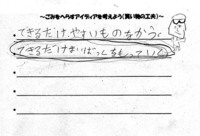 ～ごみをへらすアイディアを考えよう(買い物の工夫)～
・できるだけやすいものをかう。
・できるだけまいばっくをもっていく。